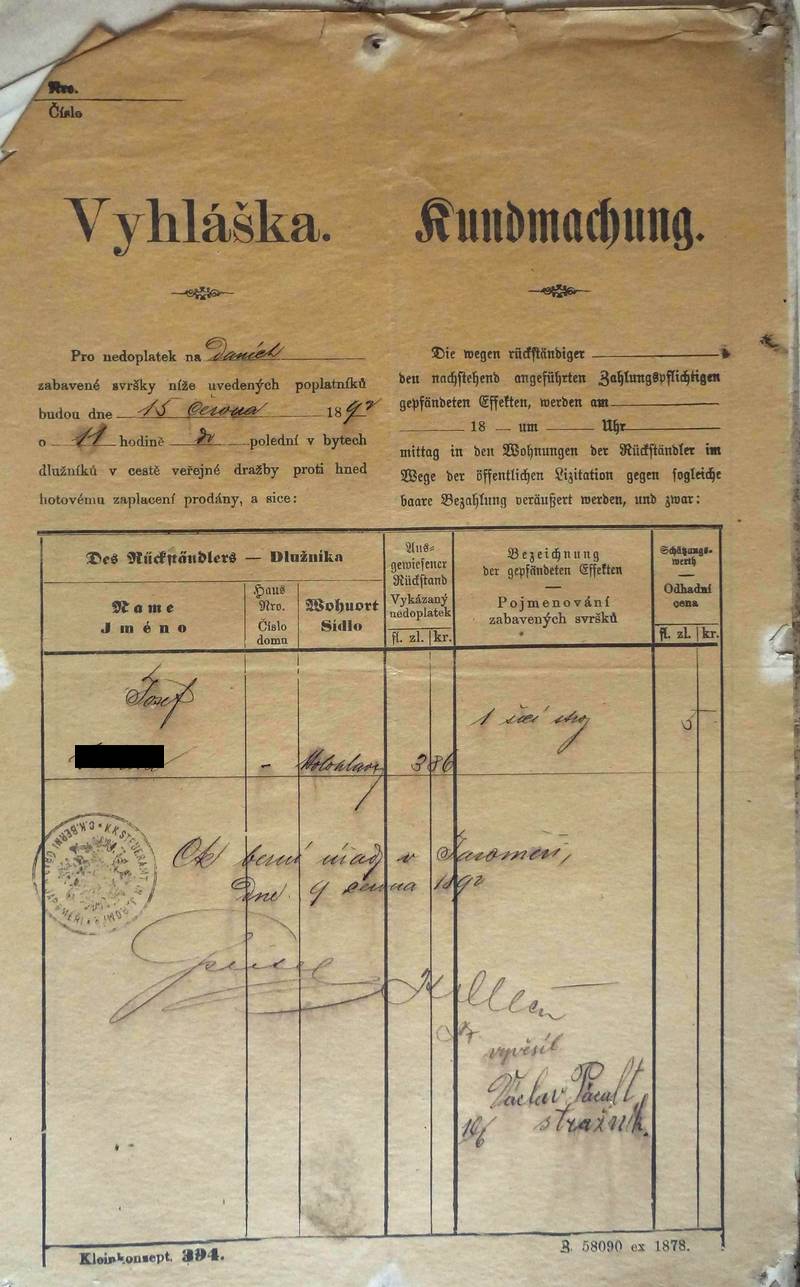 Nro.
Číslo
Vyhláška.
Pro nedoplatek na Daních
zabavené svršky níže uvedených poplatníků
budou dne 15 června 1892
o 11 hodině do polední v bytech
dlužníků v cestě veřejné dražby proti hned
hotovému zaplacení prodány, a sice:
Kundmachung.
Die wegen rückständiger
den nachstehend angeführten Zahlungspflichtigen
gepfändeten Effekten, werden am
18 um Uhr
mittag in den Wohnungen der Rückständler im
Wege der öffentlichen Lizitation gegen sogleiche
baare Bezahlung veräußert werden, und zwar:
Des Rückständlers — Dlužníka
Name
Jméno
Haus
Nro.
Číslo
domu
Wohnort
Sídlo
Aus-
gewiesener
Rückstand
Vykázaný
nedoplatek
fl. zl. kr.
Bezeichnung
der gepfändeten Effekten
Pojmenování
zabavených svršků
Schätzungs-
werth
Odhadní
cena
fl. zl. kr.
Josef
1 šicí stroj 5
- 3 86
Ck berní úřad v Jaroměři,
Dne 9 června 1892
vyvěsil
Václav
10/6 strážník.
Kleinkonsept. 394.
Z. 58090 ex 1878.